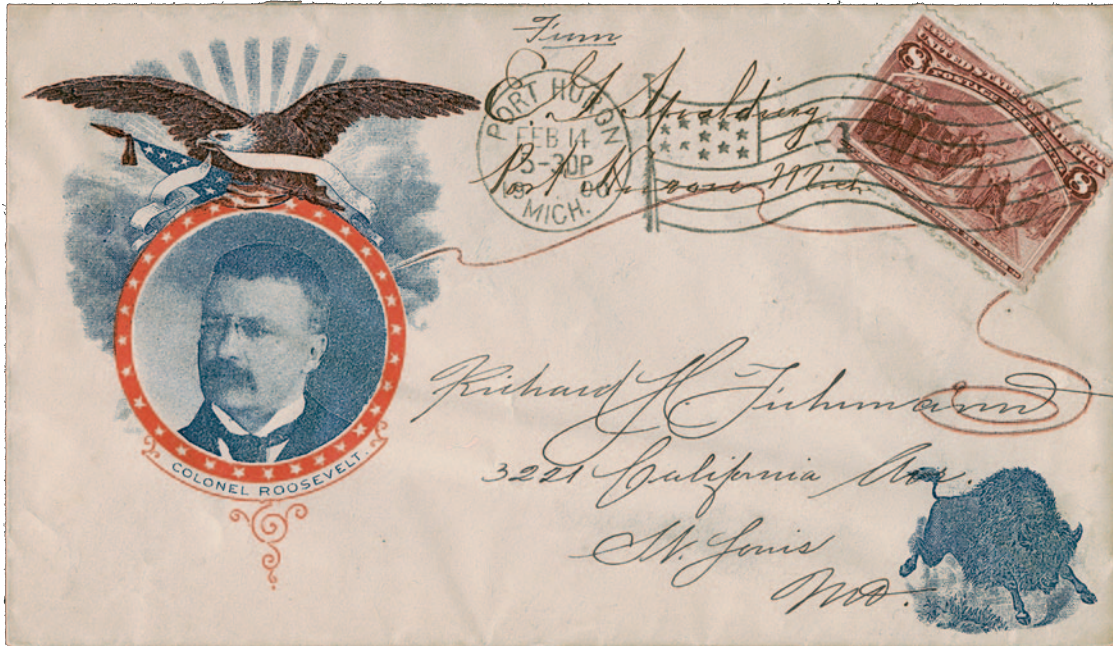 From
C. A. Spalding
Port Huron Mich.
PORT HURON
FEB 14
3-30P
MICH.
8
UNITED STATES OF AMERICA
8
COLONEL ROOSEVELT.
Richard H.
3221 California Ave.
St. Louis
Mo.